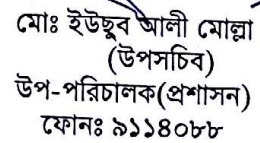 মোঃ ইউছুব আলী মোল্লা
(উপসচিব)
উপ-পরিচালক(প্রশাসন)
ফোনঃ ৯১১৪০৮৮